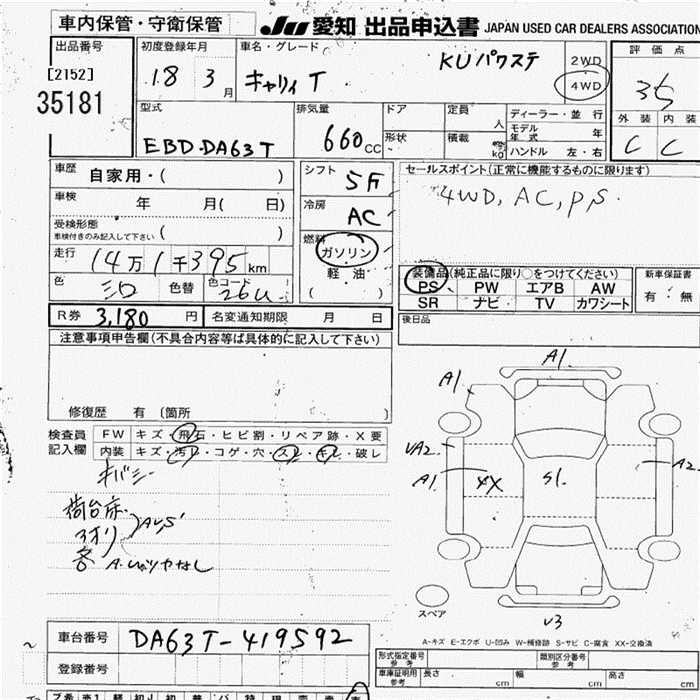 車内保管・守衛保管
JU 愛知 出品申込書 JAPAN USED CAR DEALERS ASSOCIATION
出品番号
[2152]
35181
初度登録年月
18 3月
車名・グレード
キャリィ T
KUパワステ
2WD
4WD
評価点
3.5
外装 内装
C C
型式
EBD-DA63T
排気量
660cc
ドア
形状
定員 人
積載 kg
ディーラー・並行
モデル年式 年
ハンドル 左・右
車歴 自家用・( )
車検 年 月( 日)
受検形態
車検付きのみ記入して下さい ( )
走行 14万1千395km
色 シロ 色替 色コード 26U
シフト 5F
冷房 AC
燃料 ガソリン
軽油
( )
セールスポイント(正常に機能するものに限ります)
4WD, AC, P,S.
装備品(純正品に限り〇をつけてください)
PS PW エアB AW
SR ナビ TV カワシート
新車保証書
有・無
後日品
R券 3,180円 名変通知期限 月 日
注意事項申告欄(不具合内容等は具体的に記入して下さい)
修復歴 有 〔箇所 〕
検査員記入欄
FW キズ・飛石・ヒビ割・リペア跡・X要
内装 キズ・汚レ・コゲ・穴・スレ・キレ・破レ
キバミ
荷台床
アオリ
A,U,S
A1
A1
UA2
A1
4X
S1.
A2
V3
スペア
A-キズ E-エクボ U-凹み W-補修跡 S-サビ C-腐食 XX-交換済
車台番号 DA63T-419592
登録番号
形式指定番号 参考
類別区分番号 参考
車庫証明用 参考 長さ cm 幅 cm 高さ cm